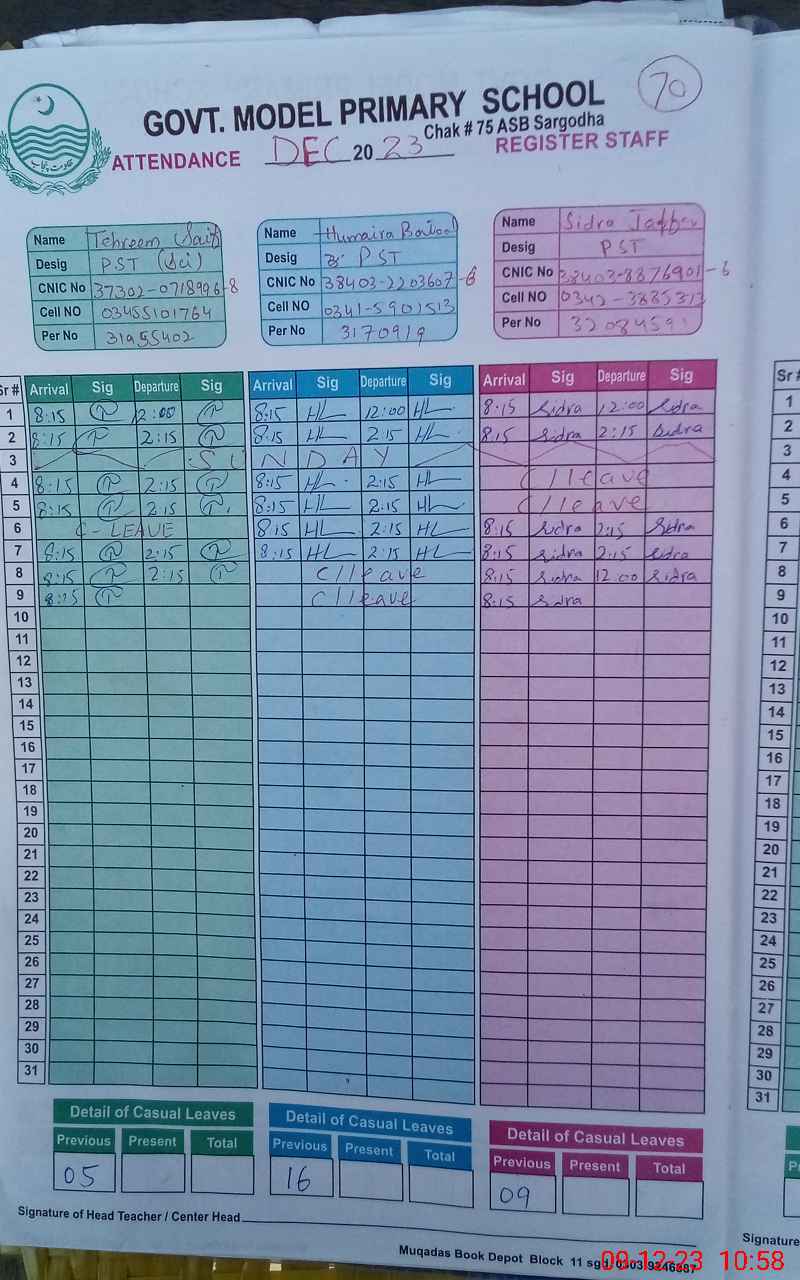 70
GOVT. MODEL PRIMARY SCHOOL
Chak # 75 ASB Sargodha
ATTENDANCE DEC 20 23 REGISTER STAFF
حکومت پنجاب
Name Tehreem Saif
Desig PST (Sci)
CNIC No 37302-0718996-8
Cell NO 03455101764
Per No 31955402
Name Humaira Batool
Desig PST
CNIC No 38403-2203607-6
Cell NO 0341-5901513
Per No 3170919
Name Sidra
Desig PST
CNIC No 38403-8876901-6
Cell NO 0342-3885313
Per No 32084591
Sr # Arrival Sig Departure Sig Arrival Sig Departure Sig Arrival Sig Departure Sig Sr #
1 8:15 12:00 8:15 HL 12:00 HL 8:15 Sidra 12:00 Sidra 1
2 8:15 2:15 8:15 HL 2:15 HL 8:15 Sidra 2:15 Sidra 2
3 SUNDAY 3
4 8:15 2:15 8:15 HL 2:15 HL C/leave 4
5 8:15 2:15 8:15 HL 2:15 HL C/leave 5
6 C-LEAVE 8:15 HL 2:15 HL 8:15 Sidra 2:15 Sidra 6
7 8:15 2:15 8:15 HL 2:15 HL 8:15 Sidra 2:15 Sidra 7
8 8:15 2:15 C/leave 8:15 Sidra 12:00 Sidra 8
9 8:15 C/leave 8:15 Sidra 9
10 10
11 11
12 12
13 13
14 14
15 15
16 16
17 17
18 18
19 19
20 20
21 21
22 22
23 23
24 24
25 25
26 26
27 27
28 28
29 29
30 30
31 31
Detail of Casual Leaves Detail of Casual Leaves Detail of Casual Leaves
Previous Present Total Previous Present Total Previous Present Total
05 16 09
Signature of Head Teacher / Center Head Signature
Muqadas Book Depot Block 11 sgd
09.12.23 10:58